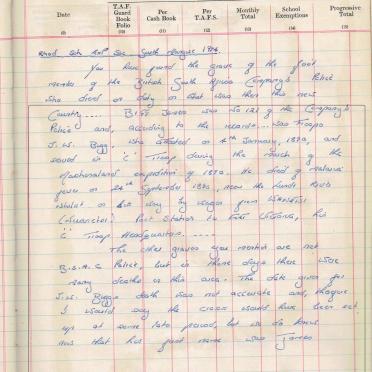 Date
T.A.F. Guard Book Folio
Per Cash Book
Per T.A.F.S.
Monthly Total
School Exemptions
Progressive Total
(9) (10) (11) (12) (13) (14) (15)
You have found the grave of the
member of the British South Africa Company's Police
who died on duty in what was then this new
Country .... was No 121 of the Company's
Police and, according to the records .... was Troop
J.W. Bugg, who attested on 4th January, 1890, and
served in 'C' Troop during the march of the
Mashonaland expedition of 1890. He died of malaria
fever on 24th September 1890, near the Lundi River
whilst on his way by wagon from
Post Station to Fort Victoria, his
'C' Troop Headquarters. ....
The other graves you mention are not
B.S.A.C Police, but in those days there were
many deaths in this area. The date given for
J.W. Bugg's death was not accurate and,
I would say the cross would have been set
up at some late period, but we do know
now that his first name was James